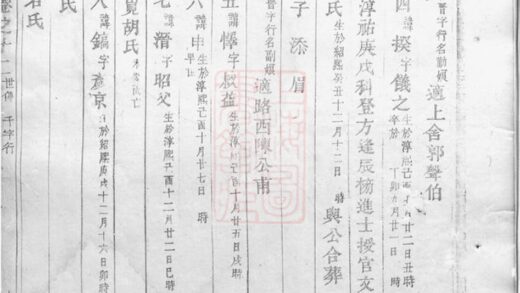 晉字行名勛娘 適上舍郭聲伯
四 諱揆字儀之 生於淳熙 六月廿二日丑時 卒於丁卯九月廿一日 時
淳祐庚戌科登方逢辰榜進士授官文
氏 生於紹熙癸丑十二月十二日 時 與公合葬
子 添眉
晉字行名副娘 適路西陳公甫
五 諱懌字叔益 生於淳熙己酉十月廿五日戌時
六 諱申 生於淳熙己酉十月廿七日 時
七 諱潛字昭父 生於淳熙己酉十二月廿二日巳時
胡氏
八 諱鎬字彥京 生於紹熙庚戌十二月十六日卯時
氏
卷之十二世傳 千字行
氏